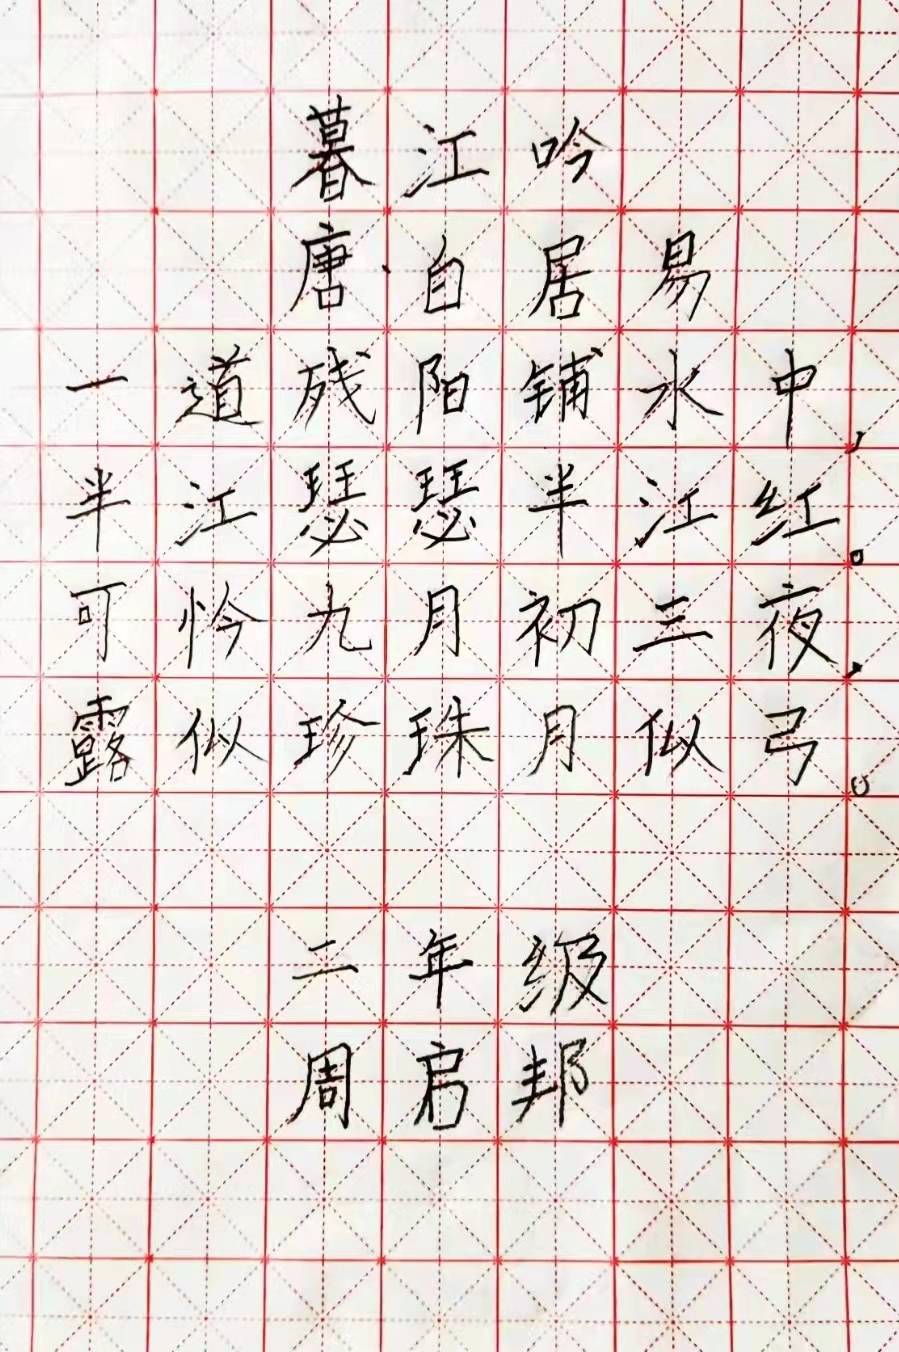 暮江吟
唐·白居易
一道残阳铺水中，
半江瑟瑟半江红。
可怜九月初三夜，
露似珍珠月似弓。
二年级
周启邦